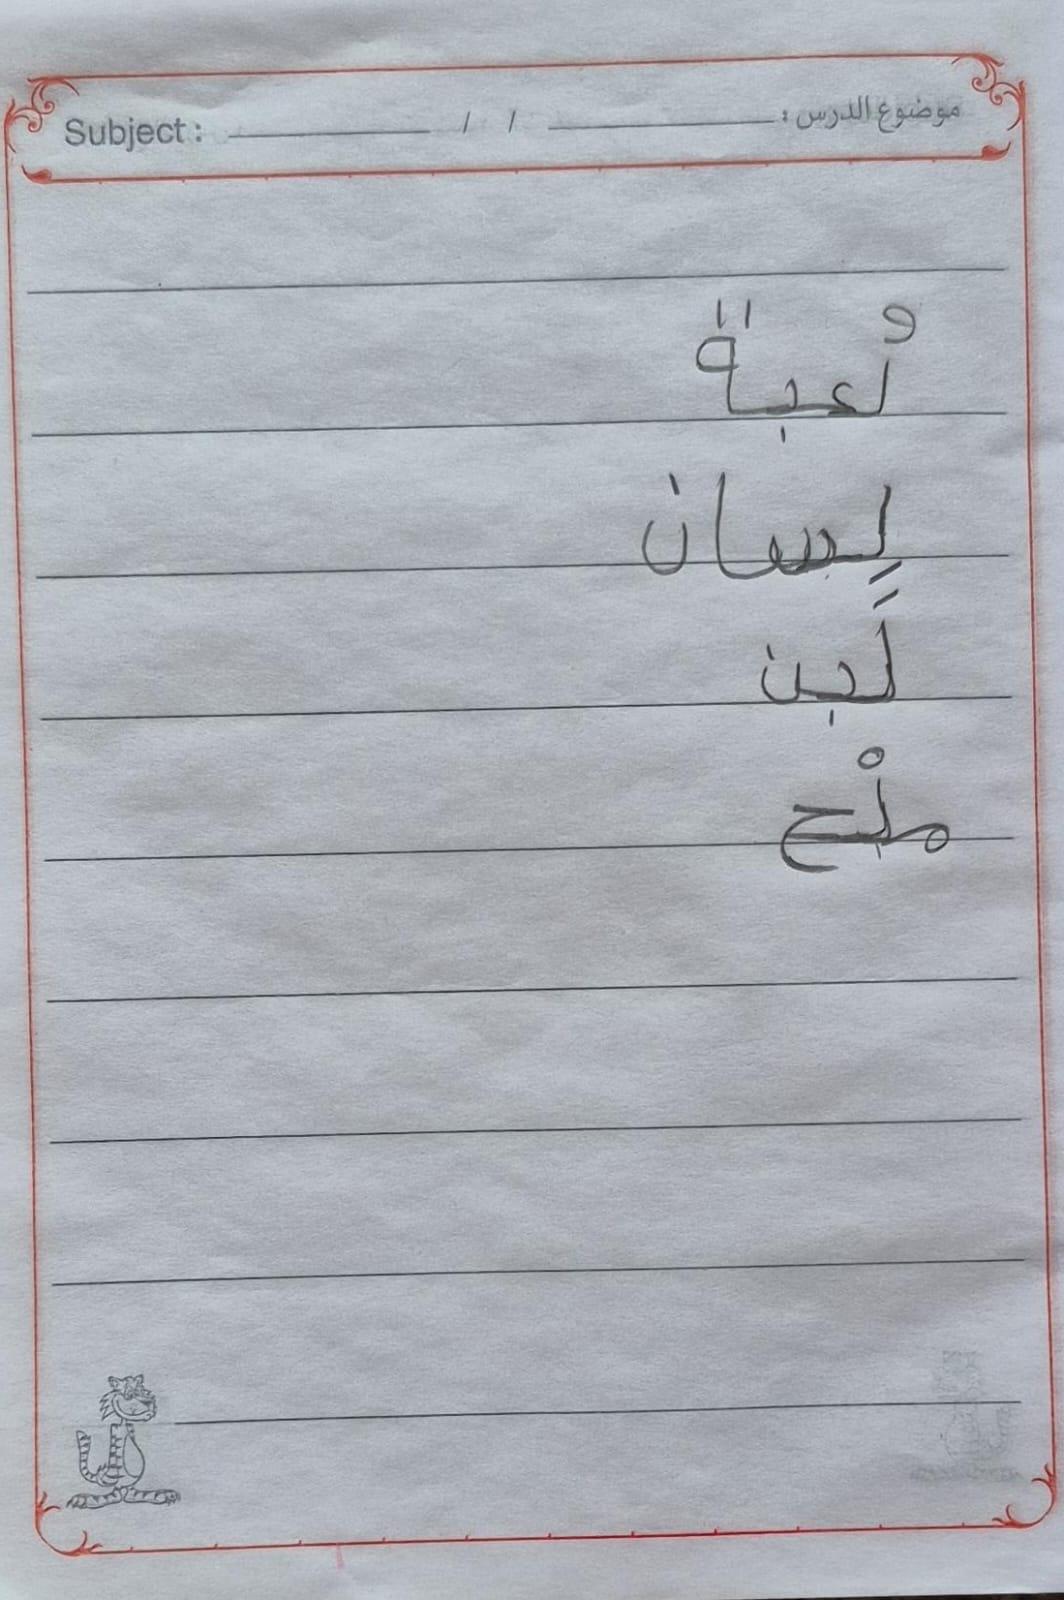 Subject : / / موضوع الدرس :
لُعبة
لِسان
لَبن
ملْح